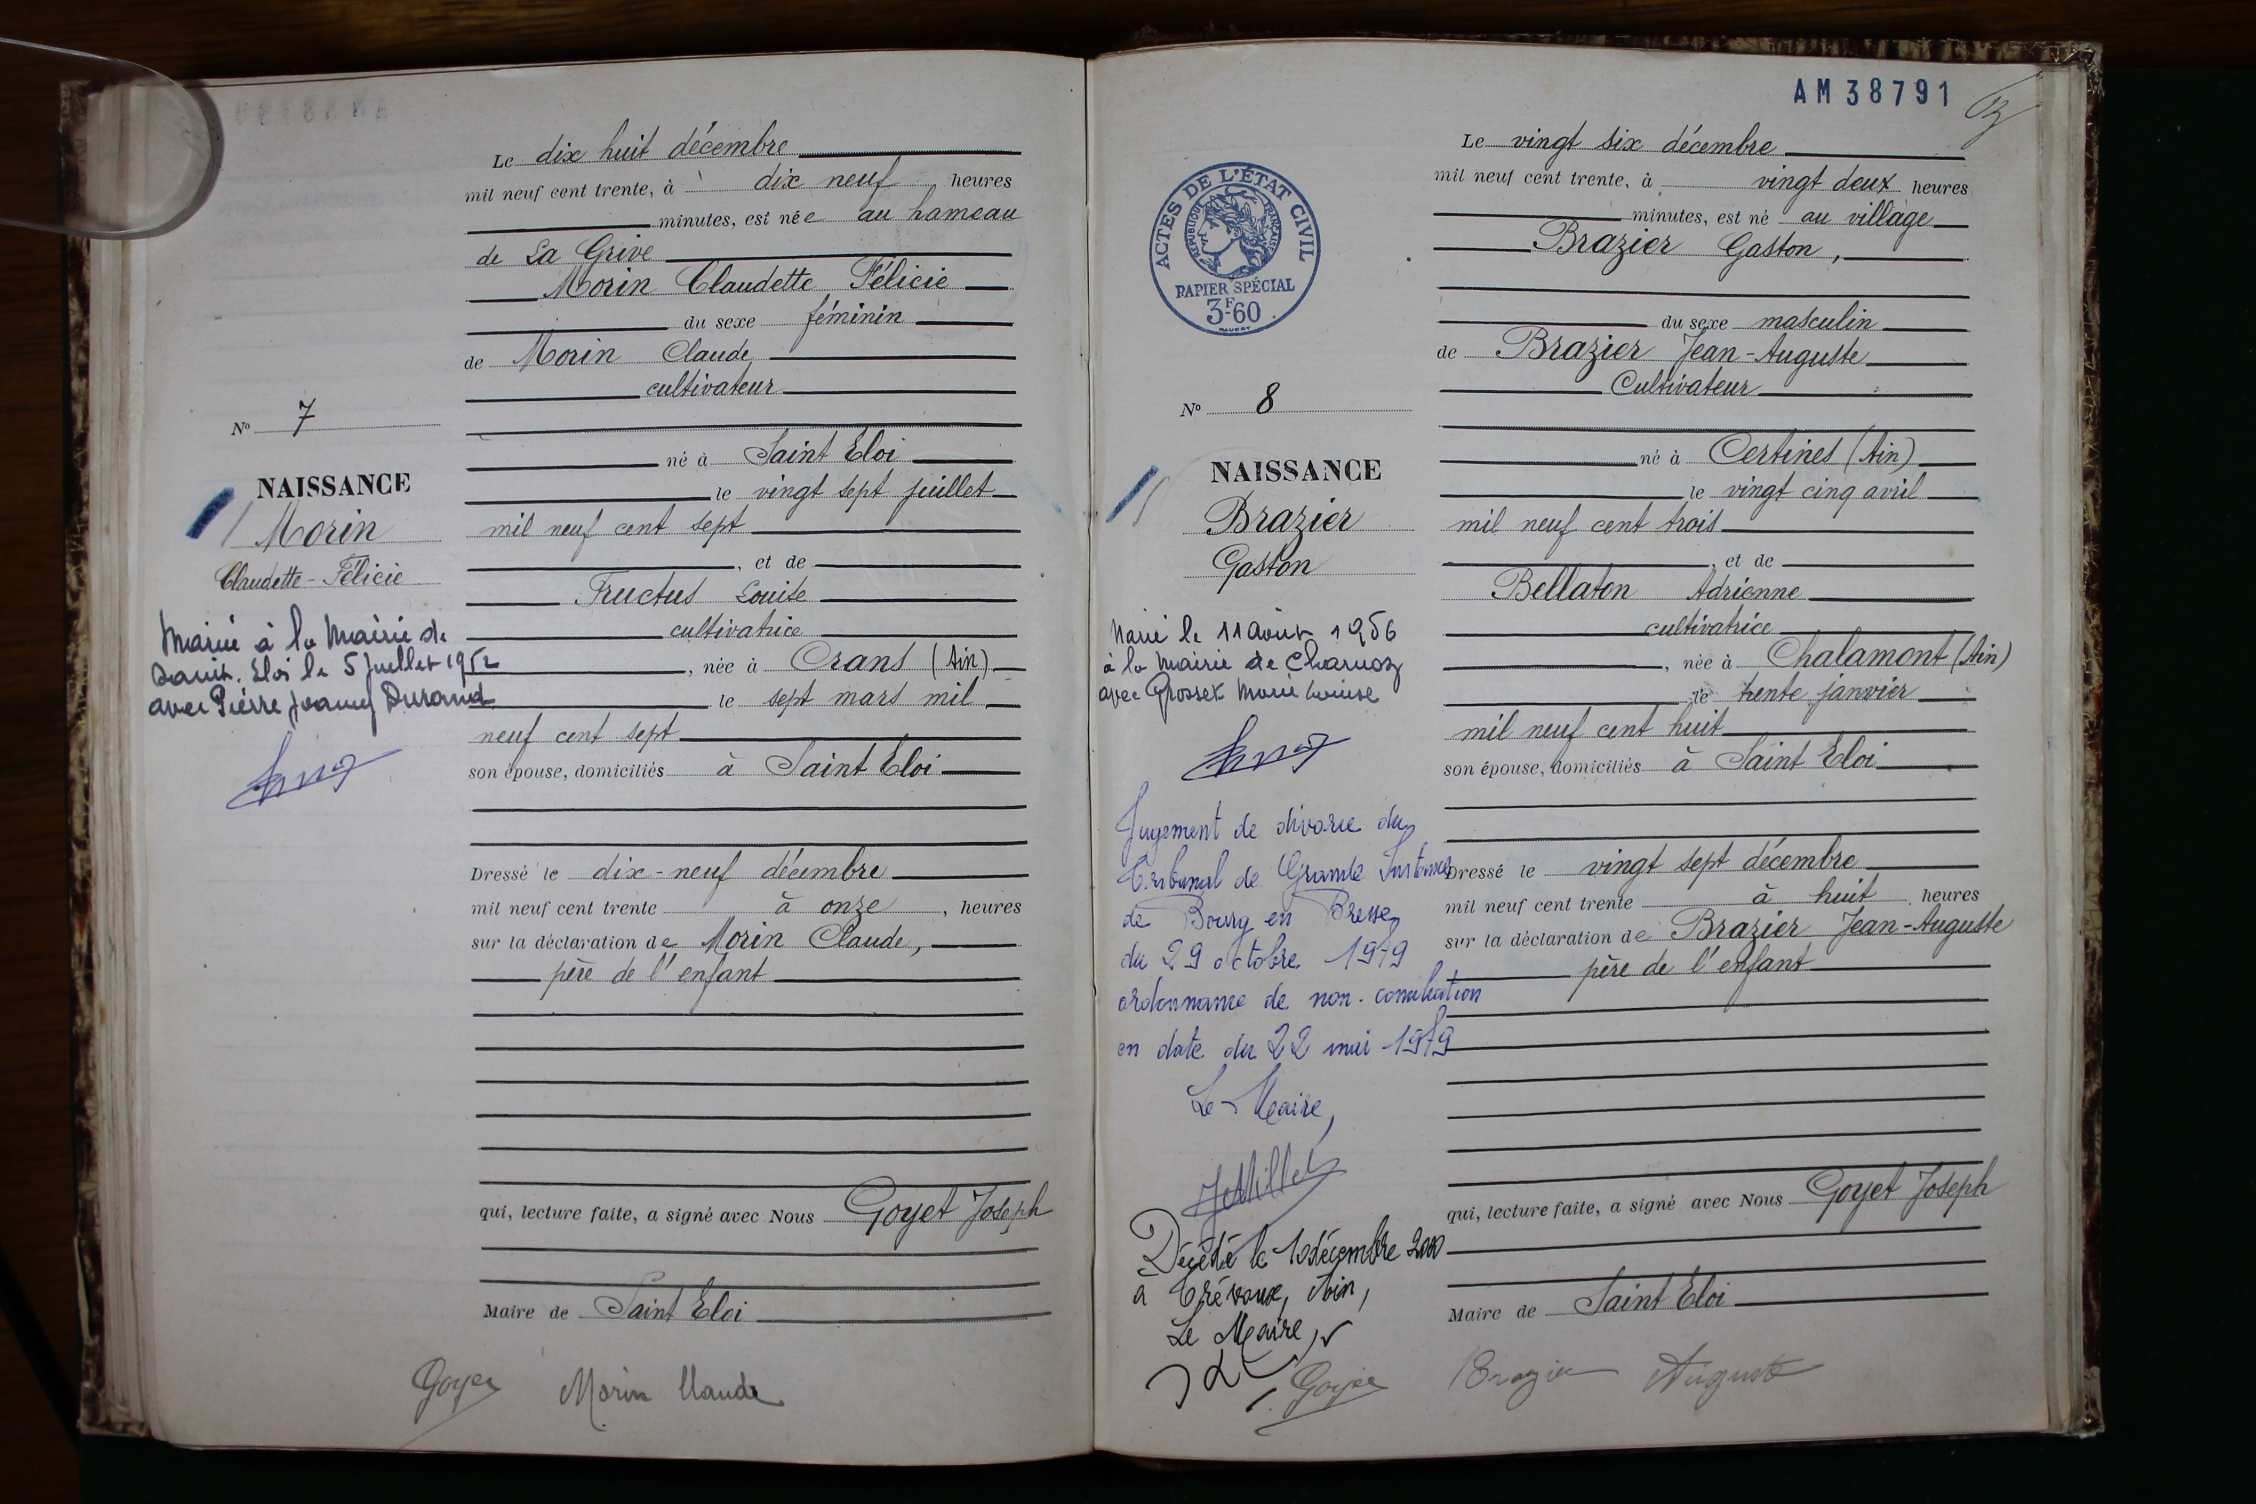 Le dix huit décembre
mil neuf cent trente, à dix neuf heures
minutes, est née au hameau
de La Grive
Morin Claudette Félicie
du sexe féminin
de Morin Claude
cultivateur
né à Saint Eloi
le vingt sept juillet
mil neuf cent sept
, et de
Fructus Louise
cultivatrice
, née à Crans (Ain)
le sept mars mil
neuf cent sept
son épouse, domiciliés à Saint Eloi
Dressé le dix-neuf décembre
mil neuf cent trente à onze, heures
sur la déclaration de Morin Claude,
père de l'enfant
qui, lecture faite, a signé avec Nous Goyet Joseph
Maire de Saint Eloi
Goyet Morin Claude
No 7
NAISSANCE
Morin
Claudette-Félicie
Mariée à la Mairie de
Saint. Eloi le 5 Juillet 1952
avec Pierre Joanny Durand
AM38791
ACTES DE L'ÉTAT CIVIL
RÉPUBLIQUE FRANÇAISE
PAPIER SPÉCIAL
3F60
No 8
NAISSANCE
Brazier
Gaston
Marié le 11 Août 1956
à la Mairie de Charnoz
avec Grosset Marie Louise
Jugement de divorce du
Tribunal de Grande Instance
de Bourg en Bresse
du 29 octobre 1979
ordonnance de non-conciliation
en date du 22 mai 1979
Le Maire,
Décédé le 10 décembre 2000
à Trévoux, Ain,
Le Maire,
Le vingt six décembre
mil neuf cent trente, à vingt deux heures
minutes, est né au village
Brazier Gaston,
du sexe masculin
de Brazier Jean-Auguste
Cultivateur
né à Certines (Ain)
le vingt cinq avril
mil neuf cent trois
, et de
Bellaton Adrienne
cultivatrice
, née à Chalamont (Ain)
le trente janvier
mil neuf cent huit
son épouse, domiciliés à Saint Eloi
Dressé le vingt sept décembre
mil neuf cent trente à huit heures
sur la déclaration de Brazier Jean-Auguste
père de l'enfant
qui, lecture faite, a signé avec Nous Goyet Joseph
Maire de Saint Eloi
Goyet Brazier Auguste